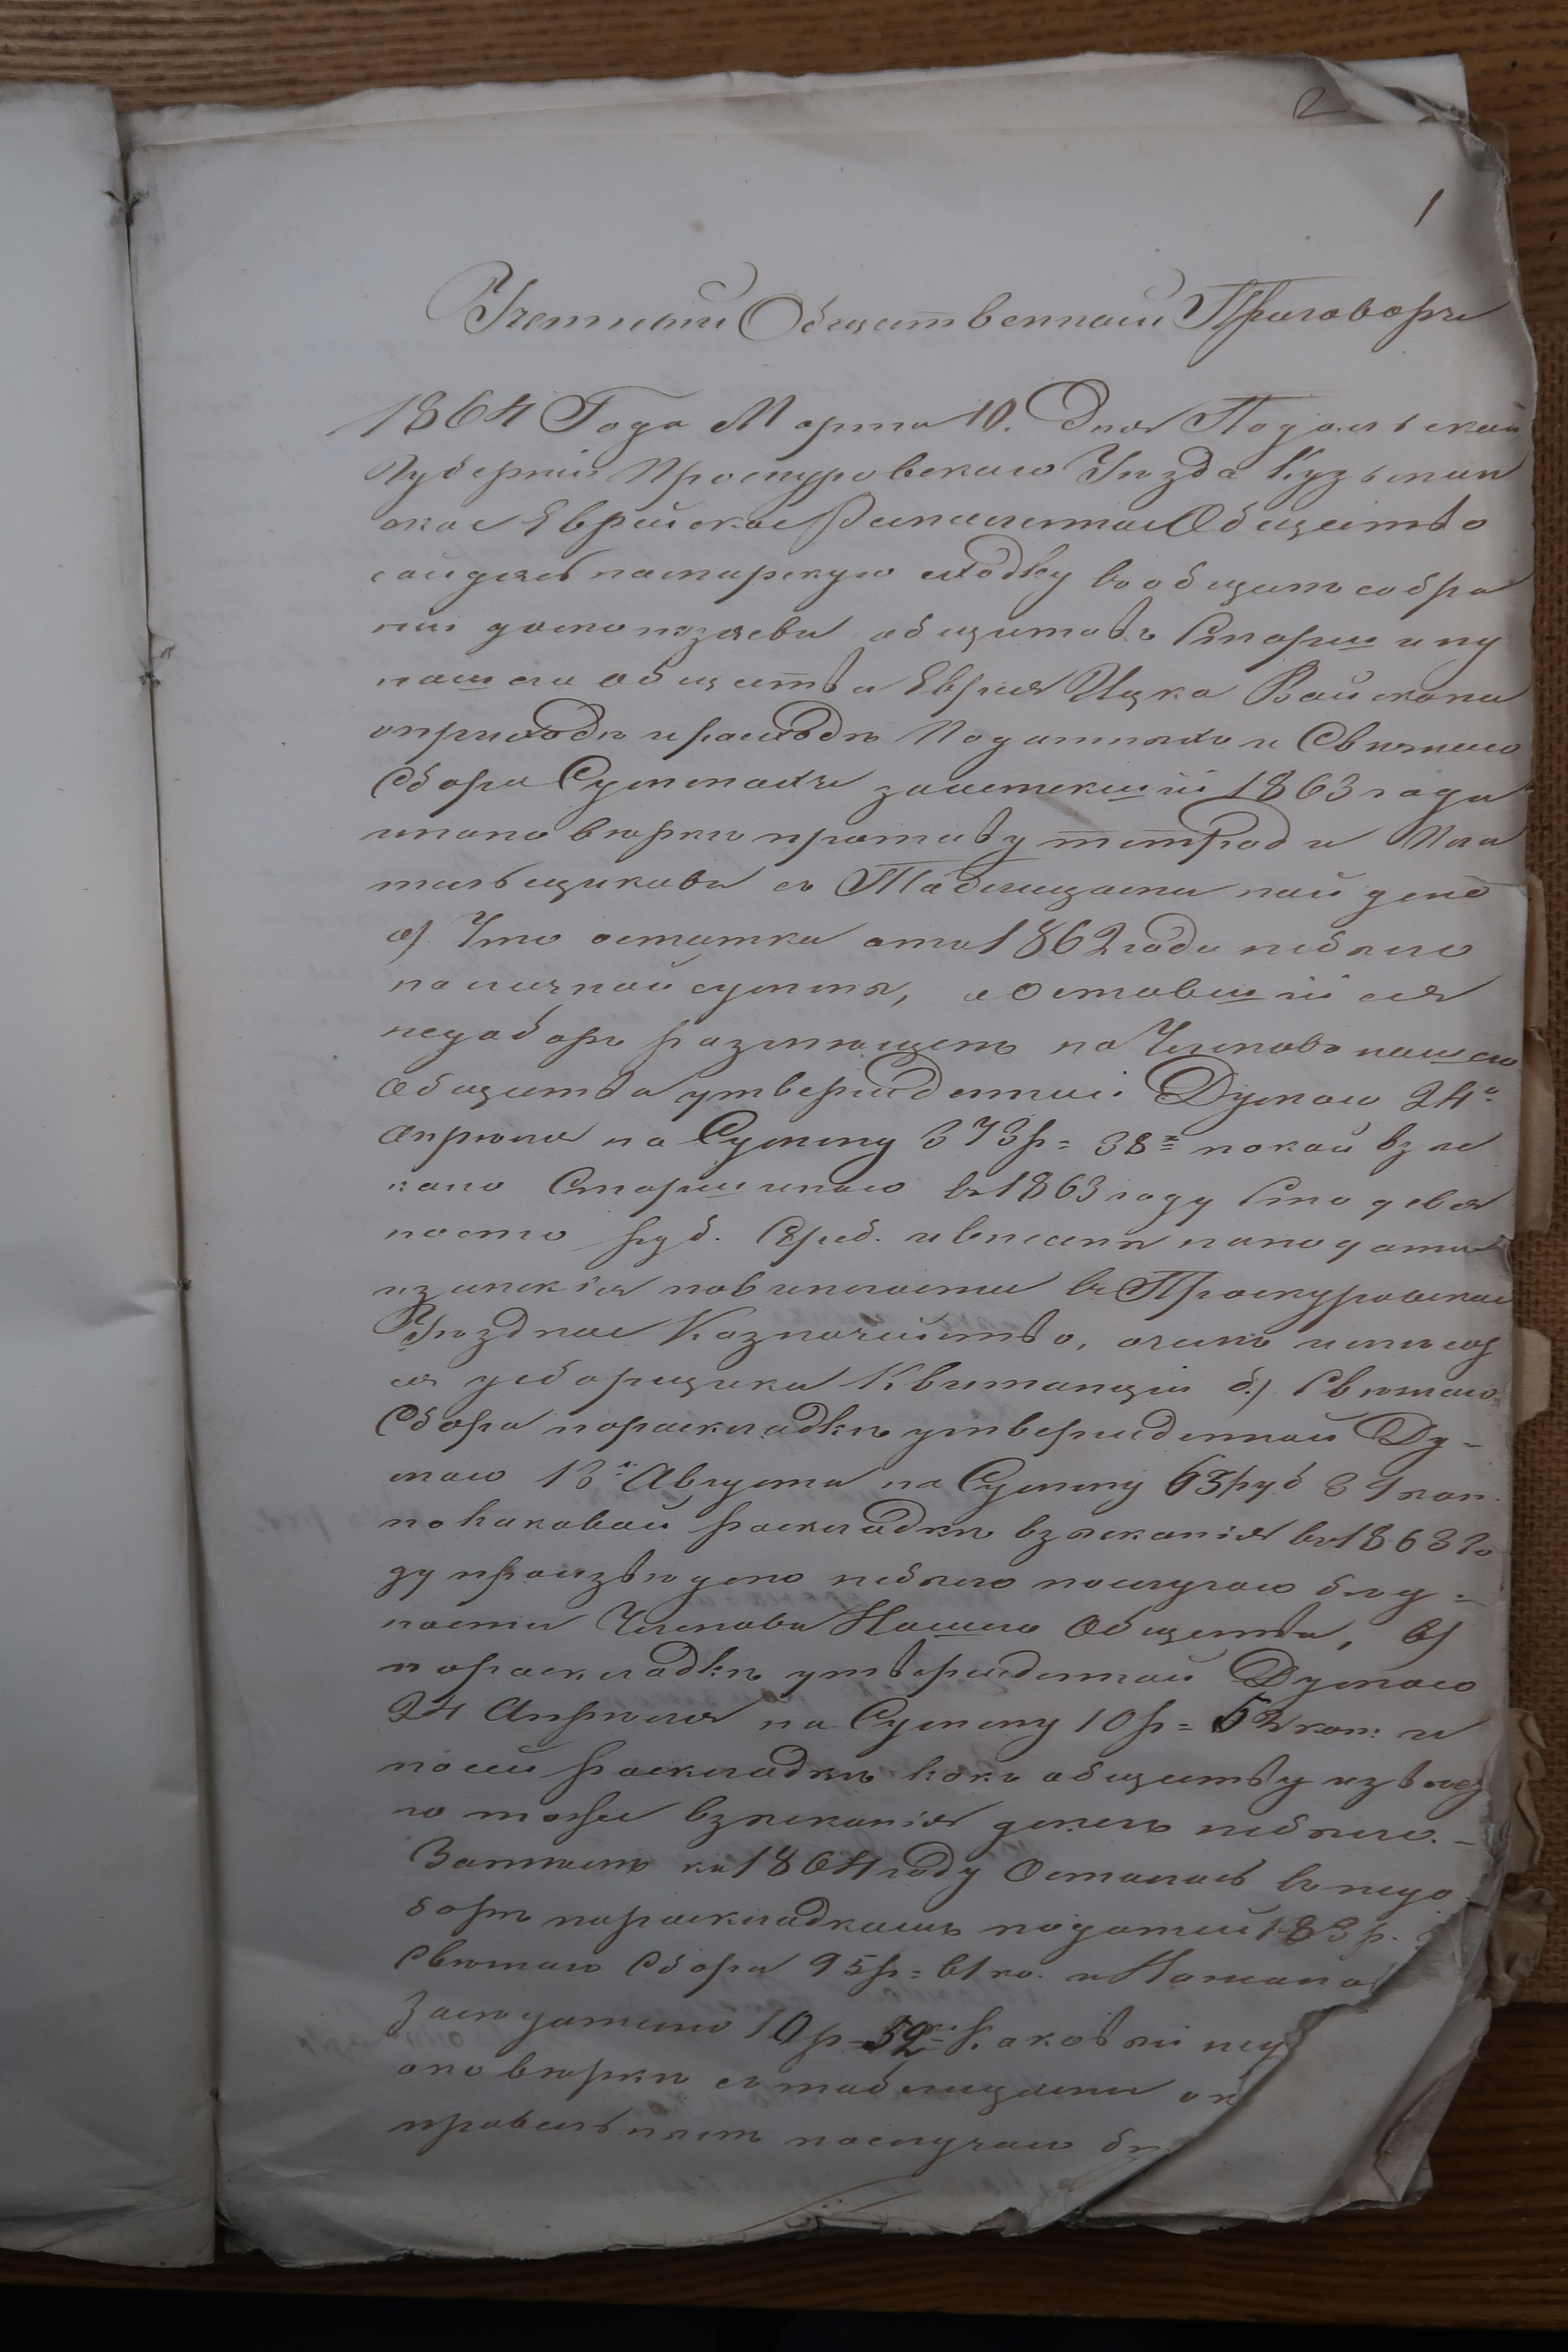 2
1
Учетный Общественный Приговоръ
1864 Года Марта 10. Дня Подольской
Губерніи Проскуровскаго Уѣзда Кузьмин
ское Еврейское Общество
сходку въ общемъ собра
ніи домохозяевъ обществ Старшину
нашего общества Еврея Ицка Вайсмана
о приходѣ и расходѣ Податныхъ и Свѣчнаго
Сбора Суммахъ за истекшій 1863 года
и по повѣркѣ противу тетрад и Пла
тельщиковъ съ Таблицами найдено
а) Что остатка отъ 1862 года небыло
наличной суммы, а Оставшійся
недоборъ размѣщенъ на Членовъ нашего
Общества утвержденной Думою 24го
Апрѣля на Сумму 373 р= 38к= по коей взы
кано Старшиною въ 1863 году Сто девя
носто руб. Сереб. и внесены на подати
и земскія повинности въ Проскуровское
Уѣздное Казначейство, о чемъ имеют
ся у сборщика Квитанціи б.) Свѣчнаго
Сбора по раскладкѣ утвержденной Ду-
мою 13го Августа на Сумму 65 руб 31 коп.
по каковой раскладкѣ взысканія въ 1863 го
ду произведено небыло по случаю бѣд=
ности Членовъ Нашего Общества, в)
по раскладкѣ утвержденной Думою
24 Апрѣля на Сумму 10 р= 52 коп: и
по сей раскладкѣ какъ обществу извѣст
но тоже взысканія денегъ небыло. -
Затѣмъ къ 1864 году Осталось въ недо
борѣ по раскладкамъ податей 183 р.
Свѣчнаго Сбора 95 р= 61 ко. и
10 р= 52к= Каковой нед
по повѣркѣ съ таблицами ок
правельнымъ по случаю бѣ